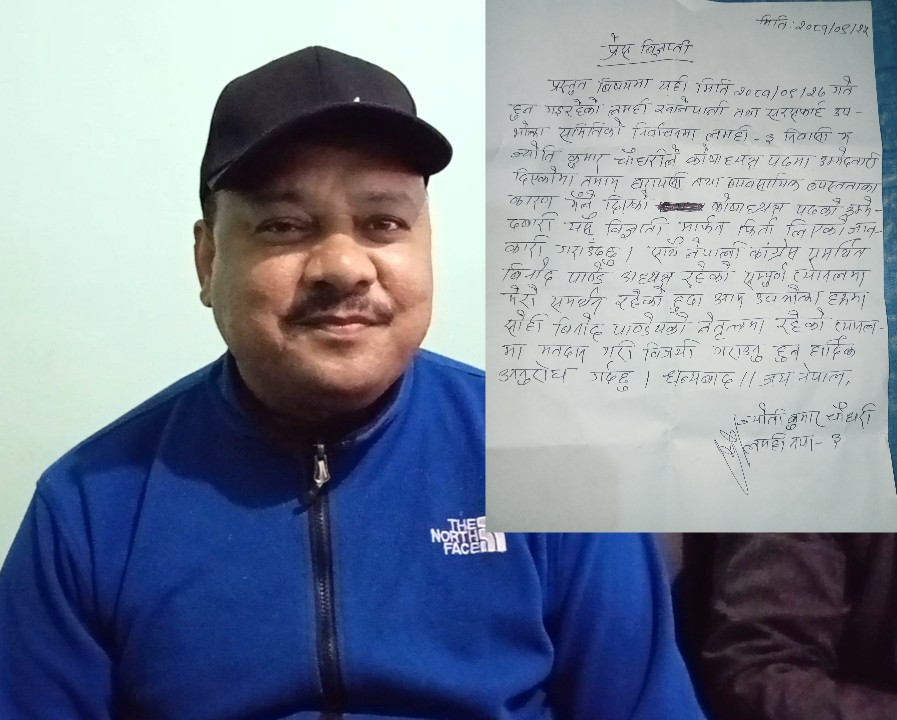 मिति: २०८१/०९/२५
प्रेस बिज्ञप्ती
प्रस्तुत बिषयमा यही मिति २०८१/०९/२७ गते
हुन गइरहेको लमही खानेपानी तथा सरसफाई उप-
भोक्ता समितिको निर्वाचनमा लमही - ३ निवासी म
ज्योति कुमार चौधरीले कोषाध्यक्ष पदमा उम्मेदवारी
दिएकोमा तमाम घरायसी तथा ब्यवसायिक ब्यस्तताका
कारण मैले दिएको कोषाध्यक्ष पदको उम्मे-
दवारी यसै बिज्ञप्ती मार्फत फिर्ता लिएको जान-
कारी गराउँदछु । साथै नेपाली कांग्रेस समर्थित
बिनोद पाण्डे अध्यक्ष रहेको सम्पुर्ण प्यानलमा
मेरो समर्थन रहेको हुदा आम उपभोक्ता हरुमा
सोही बिनोद पाण्डेयको नेतृत्वमा रहेको प्यानल-
मा मतदान गरी विजयी गराउनु हुन हार्दिक
अनुरोध गर्दछु । धन्यबाद ।। जय नेपाल,
ज्योती कुमार चौधरी
लमही नपा - ३
THE
NORTH
FACE